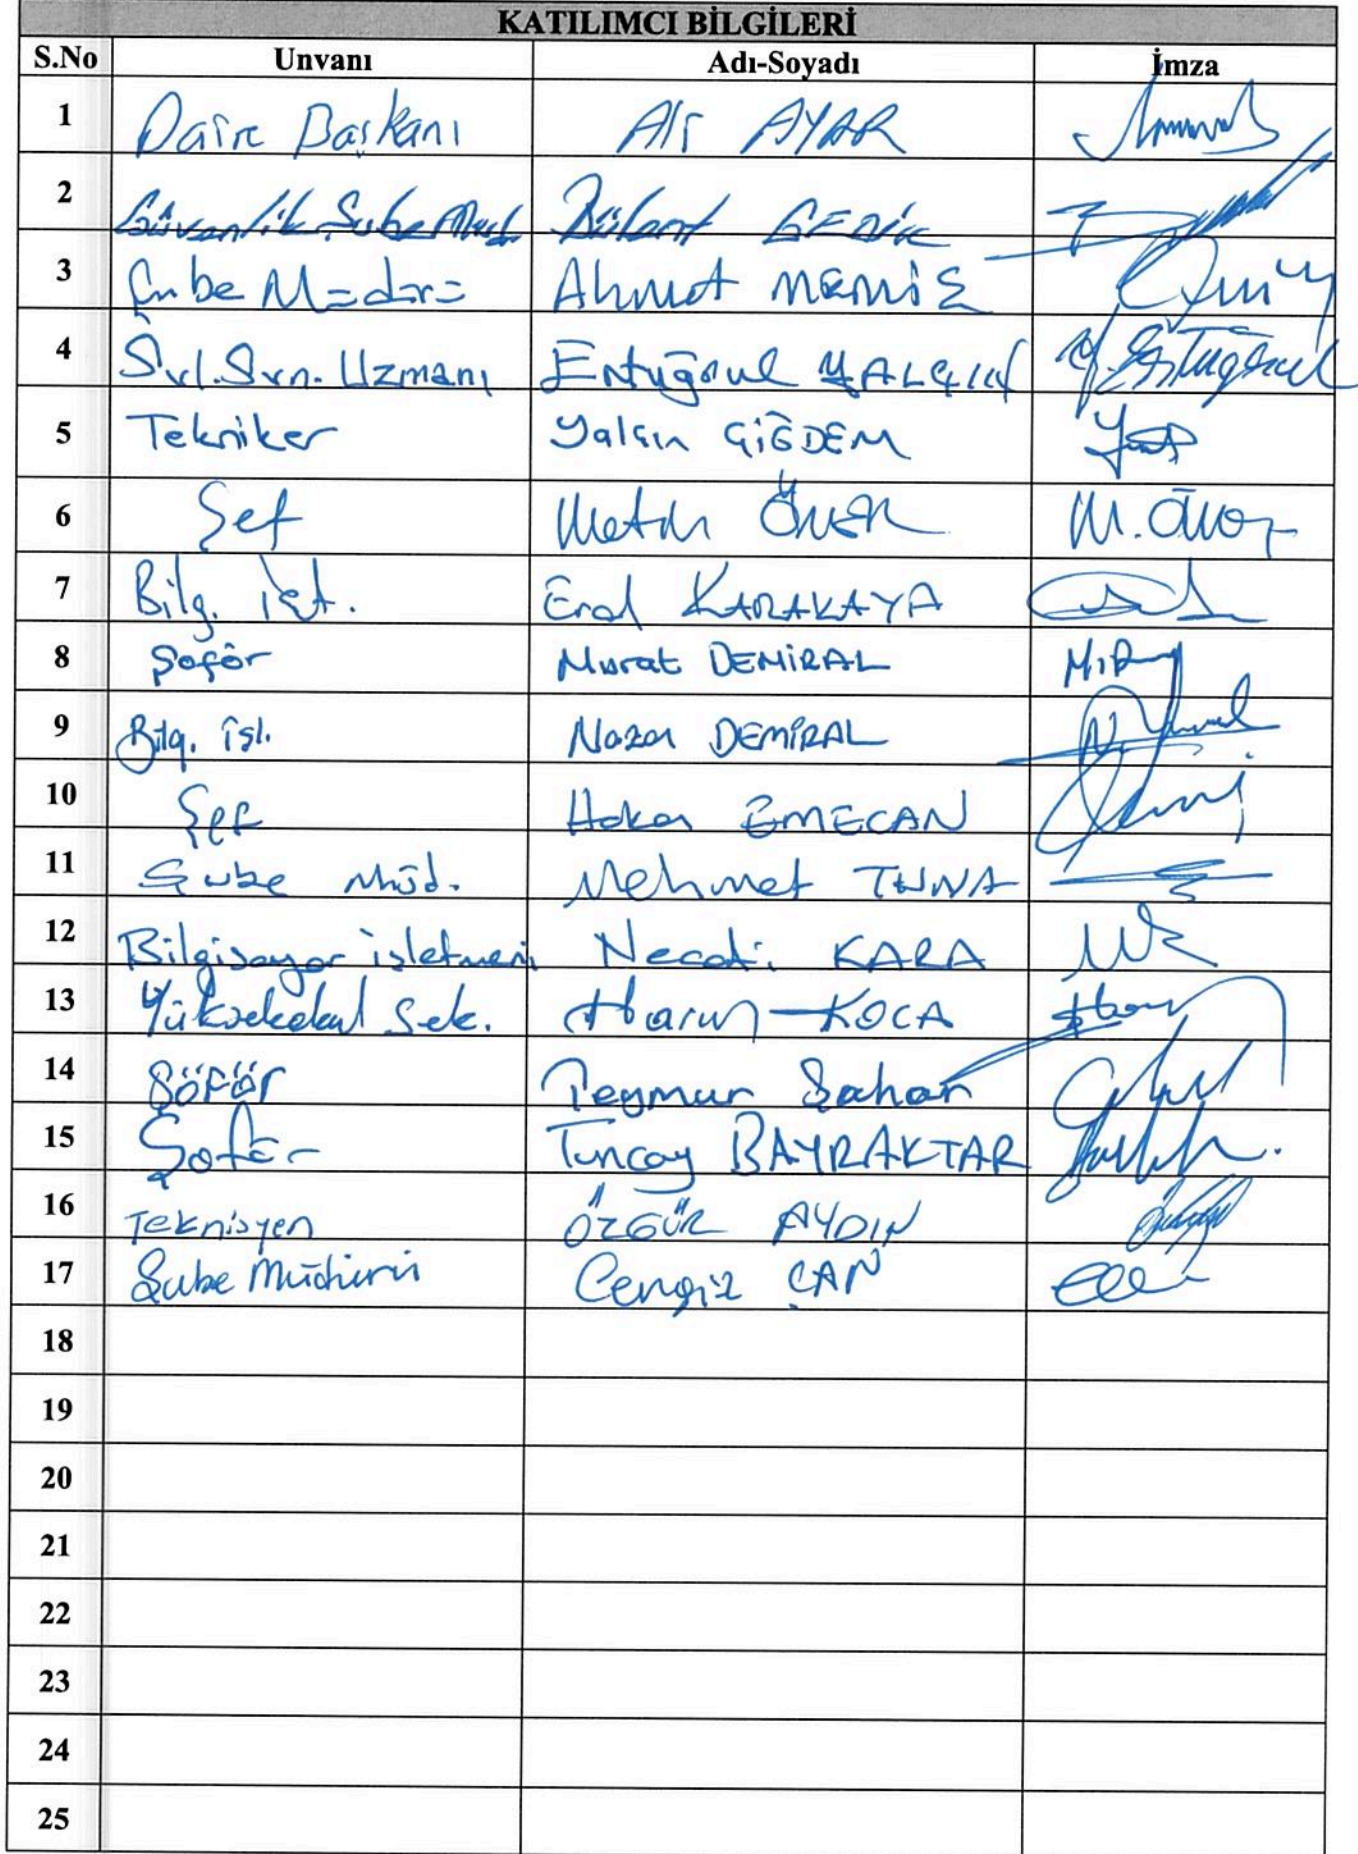 KATILIMCI BİLGİLERİ
S.No Unvanı Adı-Soyadı İmza
1 Daire Başkanı Ali AYAR
2 Güvenlik Şube Müd. Bülent GEDİK
3 Şube Müdürü Ahmet MEMİŞ
4 Svl. Svn. Uzmanı Ertuğrul YALÇIN
5 Tekniker Yalçın ÇİĞDEM
6 Şef Metin ÖNER M. Öner
7 Bilg. işt. Erol KARAKAYA
8 Şoför Murat DEMİRAL
9 Bilg. işl. Nazan DEMİRAL
10 Şef Hakan EMECAN
11 Şube Müd. Mehmet TUNA
12 Bilgisayar işletmeni Necati KARA
13 Yüksekokul Sek. Harun KOCA
14 ŞÖFÖR Teymur Şahan
15 Şoför Tuncay BAYRAKTAR
16 Teknisyen ÖZGÜR AYDIN
17 Şube Müdürü Cengiz ÇAN
18
19
20
21
22
23
24
25